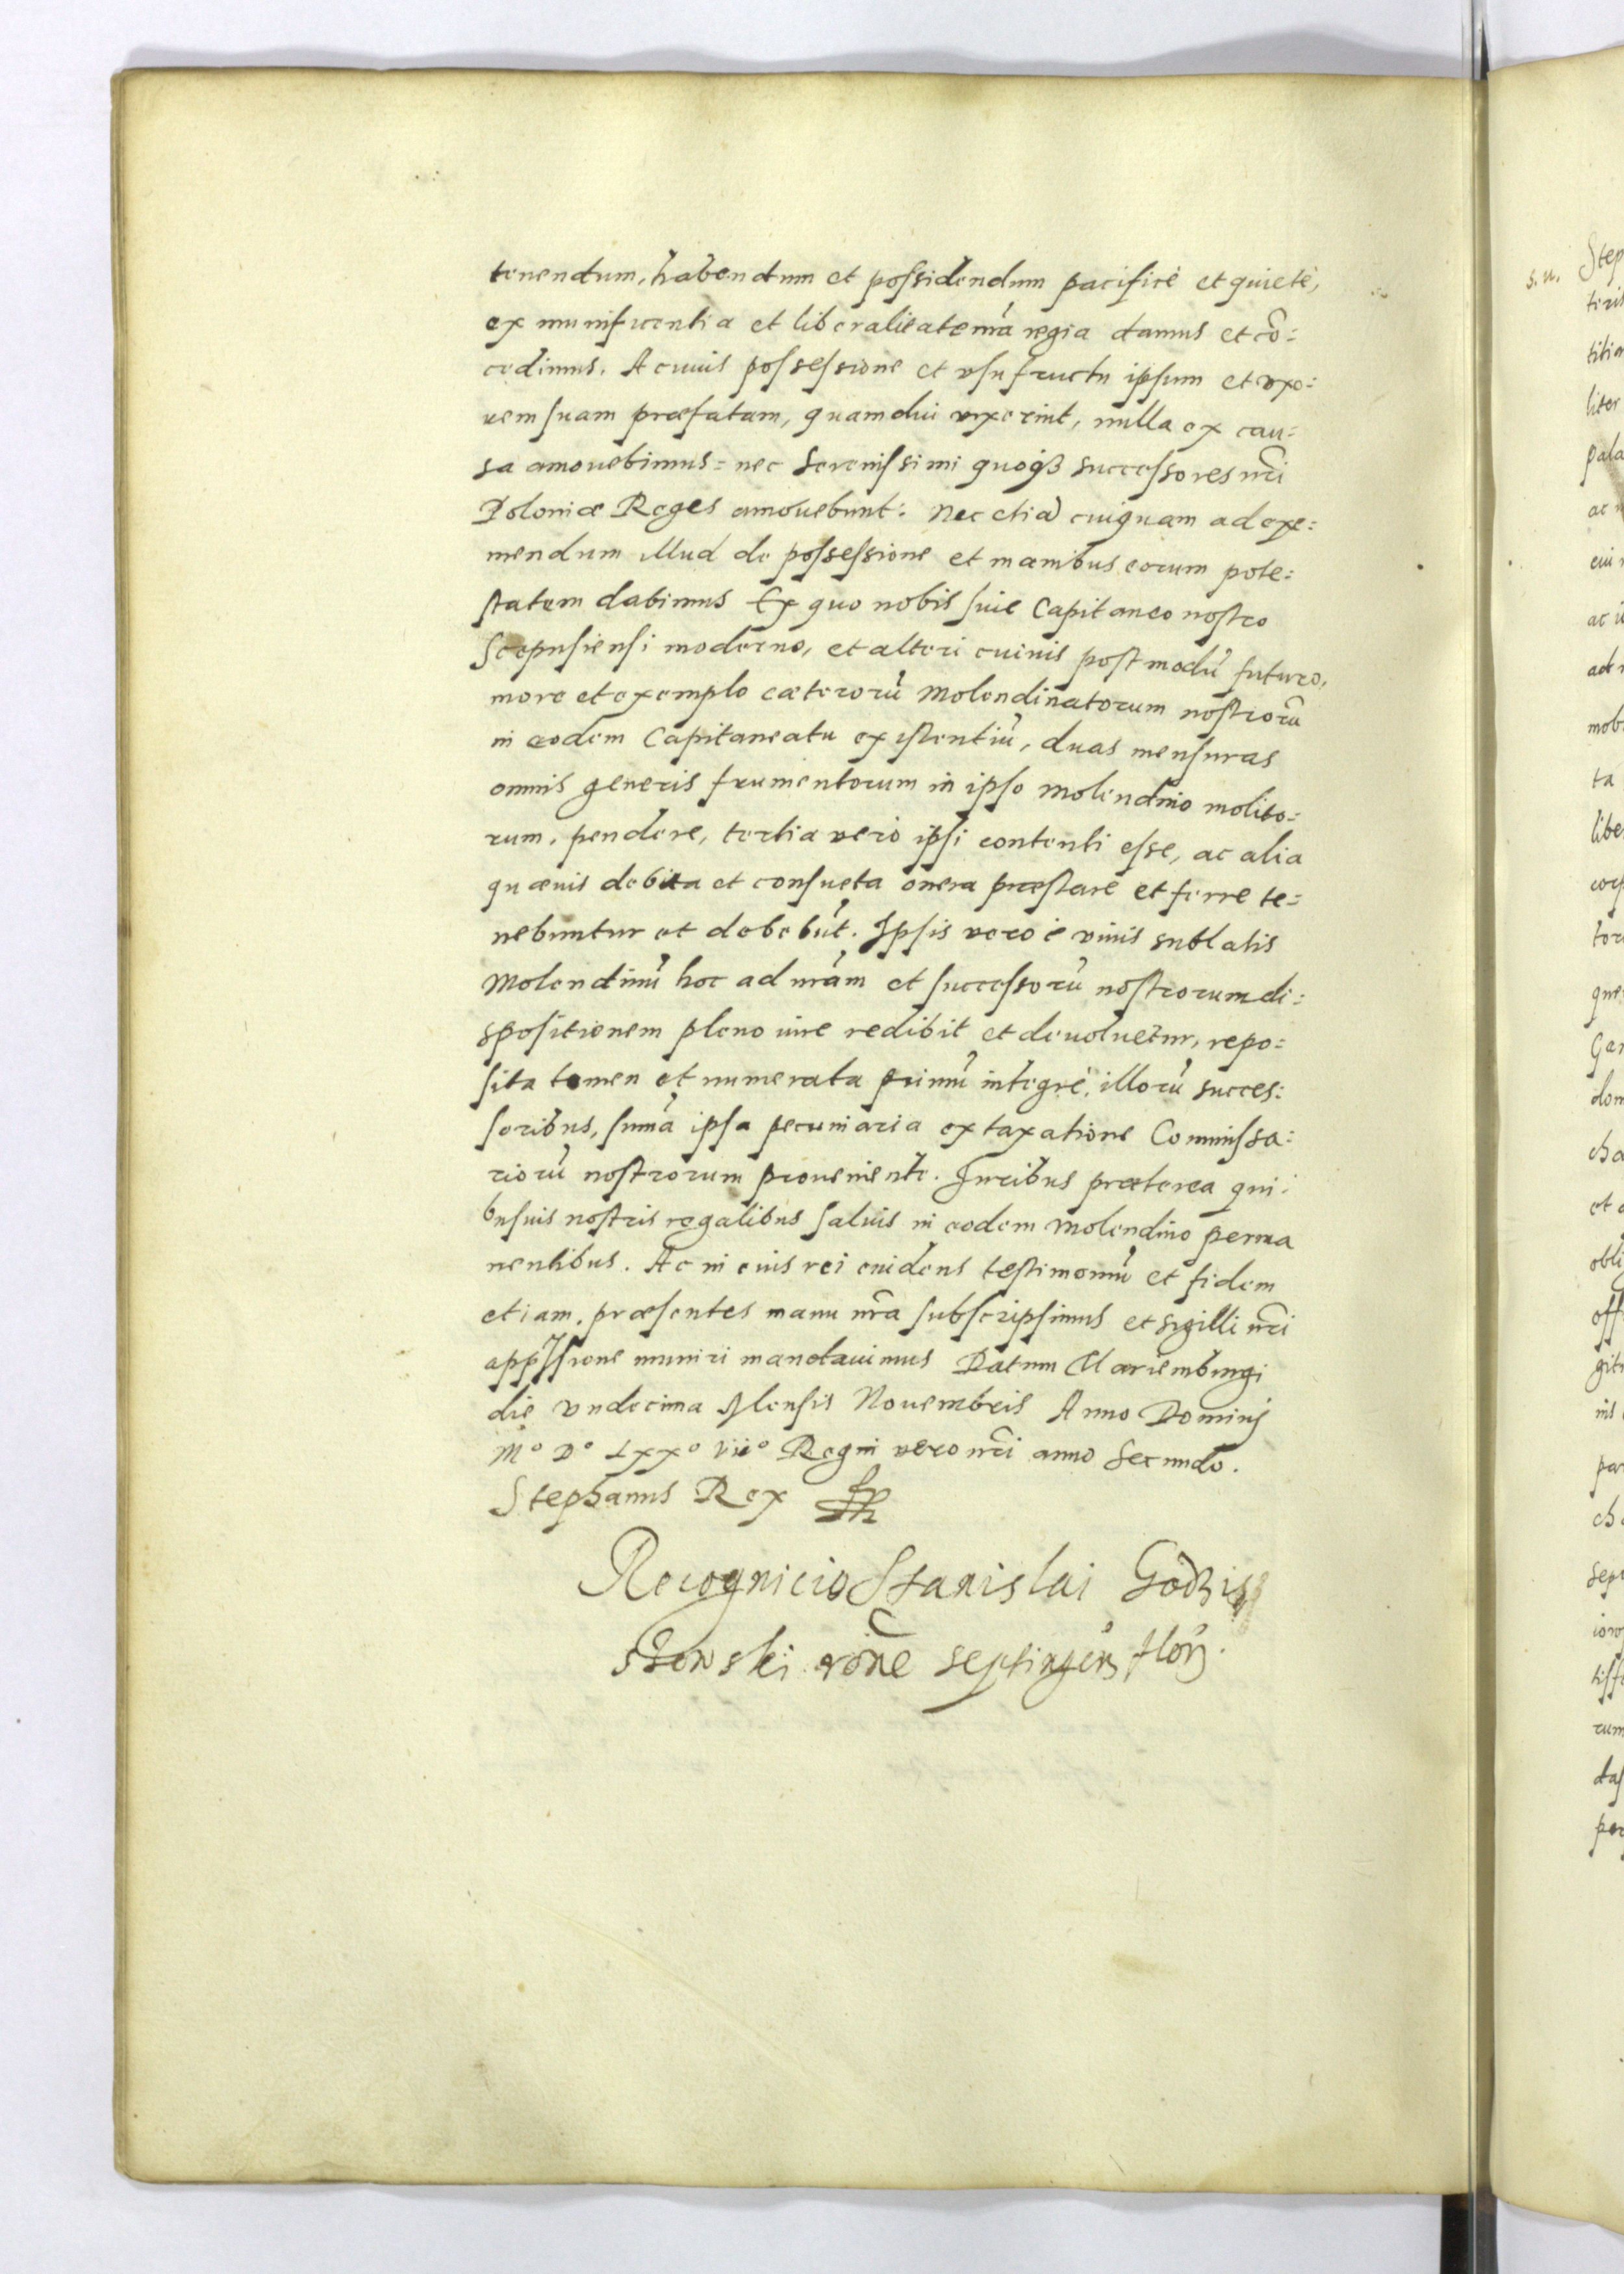 tenendum, habendum et possidendum pacificè et quietè,
ex munificentia et liberalitate nr̃a regia damus et cõ:
cedimus. A cuius possessione et vsufructu ipsum et vxo:
rem suam præfatam, quamdiu vixerint, nulla ex cau:
sa amouebimus: nec Serenissimi quoq3 successores nr̃i
Poloniæ Reges amouebunt: Nec etiã cuiquam ad exi:
mendum illud de possessione et manibus eorum pote:
statem dabimus Ex quo nobis siue Capitaneo nostro
Scepusiensi moderno, et alteri cuiuis postmodũ futuro,
more et exemplo cæterorũ Molendinatorum nostrorũ
in eodem Capitaneatu existentiũ, duas mensuras
omnis generis frumentorum in ipso Molendino molito:
rum, pendere, tertia verò ipsi contenti esse, ac alia
quæuis debita et consueta onera præstare et ferre te:
nebuntur et debebũt. Ipsis vero è viuis sublatis
Molendinũ hoc ad nr̃am et successorũ nostrorum di:
spositionem pleno iure redibit et deuoluetur, repo:
sita tamen et numerata primũ integrè, illorũ succes:
soribus, sum̃a ipsa pecuniaria ex taxatione Commissa:
riorũ nostrorum proueniente. Iuribus præterea qui:
busuis nostris regalibus saluis in eodem Molendino perma
nentibus. Ac in cuius rei euidens testimoniũ et fidem
etiam, præsentes manu nr̃a subscripsimus et sigilli nr̃i
appressione muniri mandauimus Datum Mariemburgi
die vndecima Mensis Nouembris Anno Dominj
Mº Dº Lxxº viiº Regni vero nr̃i anno Secundo.
Stephanus Rex
Recognicio Stanislai Godzis
sSewski rõne septingen flor.
s. n.
Step
teris
titia
liter
pala
ac
cui
ac
ad
mob
ta
libe
corp
tor
que
Gar
dom
cha
et
obli
off
git
nis
par
ch
sept
ioro
tiss
rum
das
per